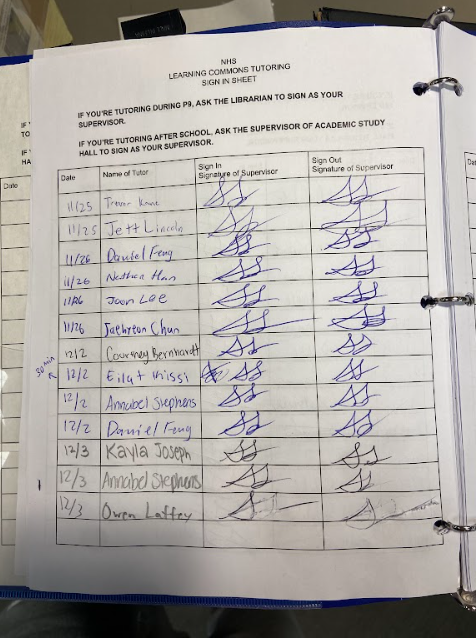 NHS
LEARNING COMMONS TUTORING
SIGN IN SHEET
IF YOU'RE TUTORING DURING P9, ASK THE LIBRARIAN TO SIGN AS YOUR
SUPERVISOR.
IF YOU'RE TUTORING AFTER SCHOOL, ASK THE SUPERVISOR OF ACADEMIC STUDY
HALL TO SIGN AS YOUR SUPERVISOR.
Date Name of Tutor Sign In Signature of Supervisor Sign Out Signature of Supervisor
11/25 Trevor
11/25 Jett Lincoln
11/26 Daniel Feng
11/26 Nathan Han
11/26 Joon Lee
11/26 Chun
12/2 Courtney Bernhardt
30 min 12/2 Eilat
12/2 Annabel Stephens
12/2 Daniel Feng
12/3 Kayla Joseph
12/3 Annabel Stephens
12/3 Owen Laffey
Date